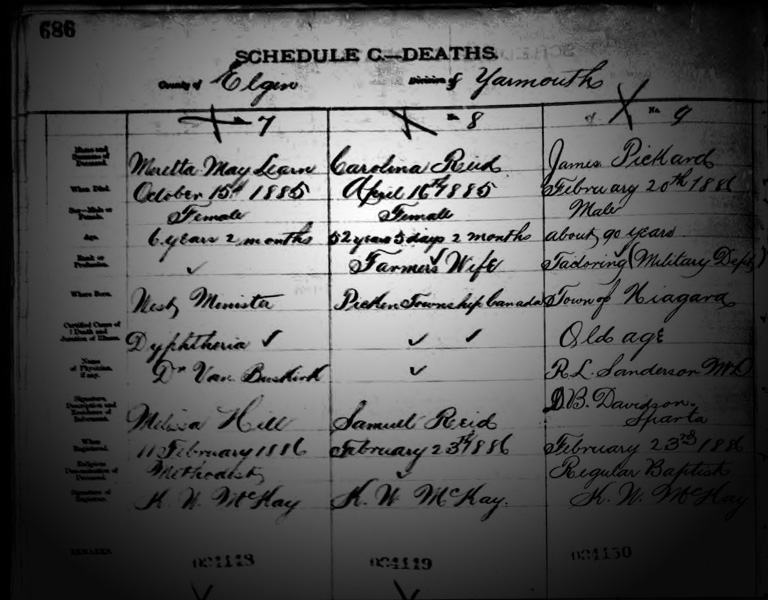 686
SCHEDULE C.—DEATHS.
County of Elgin Division of Yarmouth
7 8 No. 9
Name and Surname of Deceased. Meretta May Learn Carolina Reid James Pickard
When Died. October 15th 1885 April 16th 1885 February 20th 1886
Sex—Male or Female. Female Female Male
Age. 6 years 2 months 52 years 5 days 2 months about 90 years
Rank or Profession. Farmers Wife Tadoring (Military Dept)
Where Born. West Minister Picken Township Canada Town of Niagara
Certified Cause of Death and Duration of Illness. Dyphtheria Old age
Name of Physician, if any. Dr Van Buskirk R. L. Sanderson MD
Signature, Description and Residence of Informant. Melissa Hill Samuel Reid D.B. Davidson. Sparta
When Registered. 11 February 1886 February 23rd 1886 February 23rd 1886
Religious Denomination of Deceased. Methodist Regular Baptist
Signature of Registrar. K. W. McKay K. W McKay. K. W. McKay
REMARKS. 024148 024149 024150